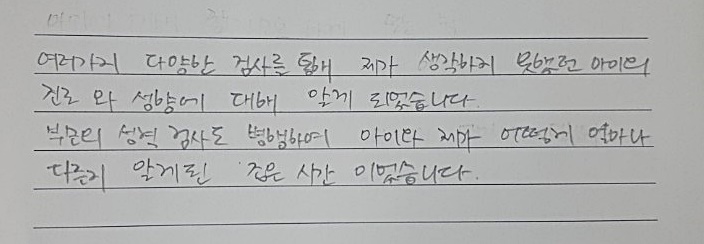 여러가지 다양한 검사를 통해 제가 생각하지 못했던 아이의
진로 와 성향에 대해 알게 되었습니다.
부모의 성격 검사도 병행하여 아이와 제가 어떻게 얼마나
다른지 알게된 좋은 시간 이었습니다.